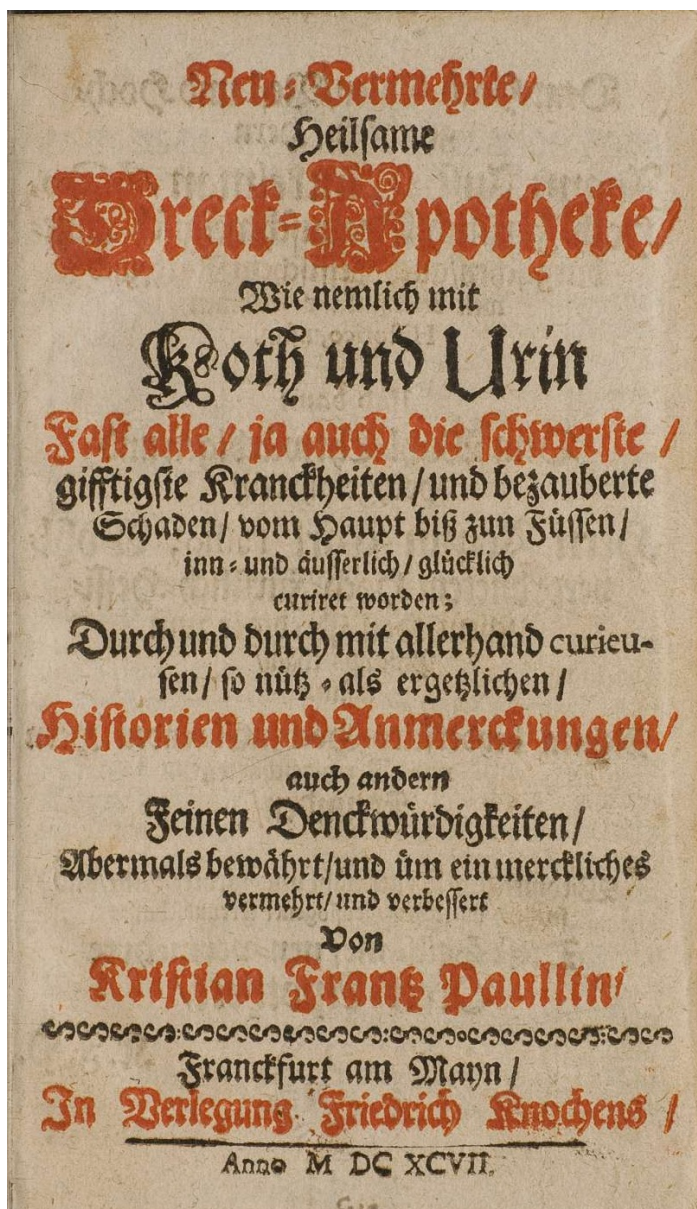 Neu-Vermehrte/
Heilsame
Dreck-Apotheke/
Wie nemlich mit
Koth und Urin
Fast alle / ja auch die schwerste /
gifftigste Kranckheiten / und bezauberte
Schaden / vom Haupt biß zun Füssen /
inn- und äusserlich / glücklich
curiret worden;
Durch und durch mit allerhand curieu-
sen / so nütz-als ergetzlichen /
Historien und Anmerckungen /
auch andern
Feinen Denckwürdigkeiten /
Abermals bewährt / und üm ein merckliches
vermehrt / und verbessert
Von
Kristian Frantz Paullin /
Franckfurt am Mayn /
In Verlegung Friedrich Knochens /
Anno M DC XCVII.